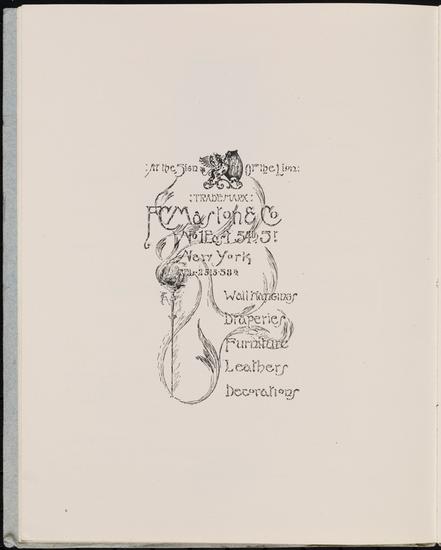 :At the Sign Of the Lion:
:TRADEMARK:
FC Marston & Co
No 1 East 54th St
New York
Wall Hangings
Draperies
Furniture
Leathers
Decorations